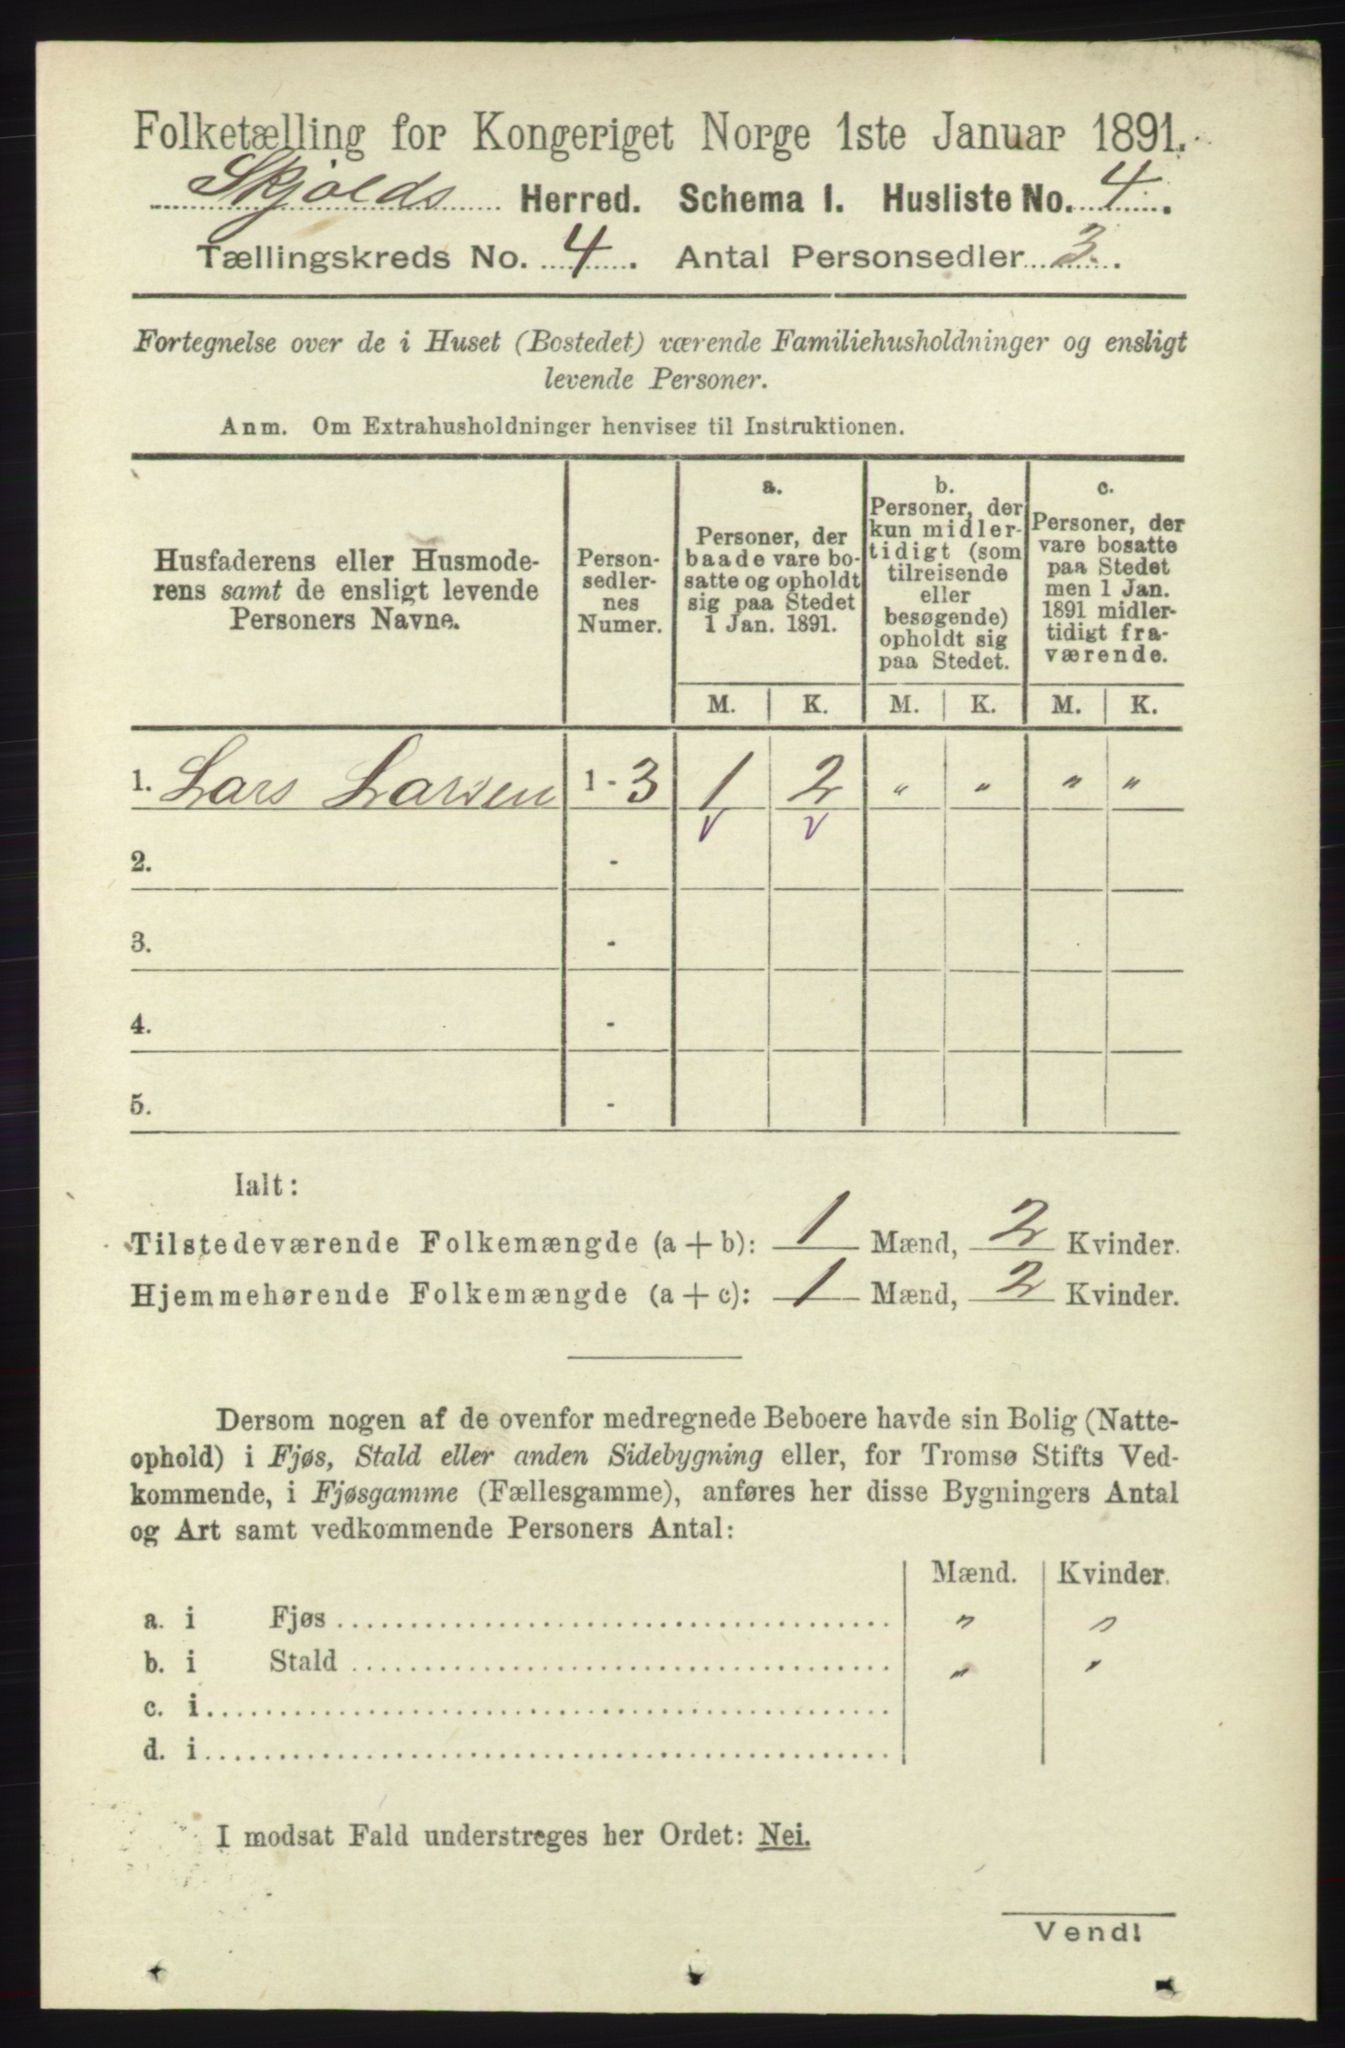 Folketælling for Kongeriget Norge 1ste Januar 1891.
Skjolds Herred. Schema I. Husliste No. 4.
Tællingskreds No. 4. Antal Personsedler 3.
Fortegnelse over de i Huset (Bostedet) værende Familiehusholdninger og ensligt
levende Personer.
Anm. Om Extrahusholdninger henvises til Instruktionen.
Husfaderens eller Husmode-
rens samt de ensligt levende
Personers Navne.
Person-
sedler-
nes
Numer.
a.
Personer, der
baade vare bo-
satte og opholdt
sig paa Stedet
1 Jan. 1891.
b.
Personer, der
kun midler-
tidigt (som
tilreisende
eller
besøgende)
opholdt sig
paa Stedet.
c.
Personer, der
vare bosatte
paa Stedet
men 1 Jan.
1891 midler-
tidigt fra-
værende.
M. K. M. K. M. K.
1. Lars Larsen 1 - 3 1 2 " " " "
v v
2. -
3. -
4. -
5. -
Ialt:
Tilstedeværende Folkemængde (a + b): 1 Mænd, 2 Kvinder.
Hjemmehørende Folkemængde (a + c): 1 Mænd, 2 Kvinder.
Dersom nogen af de ovenfor medregnede Beboere havde sin Bolig (Natte-
ophold) i Fjøs, Stald eller anden Sidebygning eller, for Tromsø Stifts Ved-
kommende, i Fjøsgamme (Fællesgamme), anføres her disse Bygningers Antal
og Art samt vedkommende Personers Antal:
Mænd. Kvinder.
a. i Fjøs " "
b. i Stald " "
c. i
d. i
I modsat Fald understreges her Ordet: Nei.
Vend!